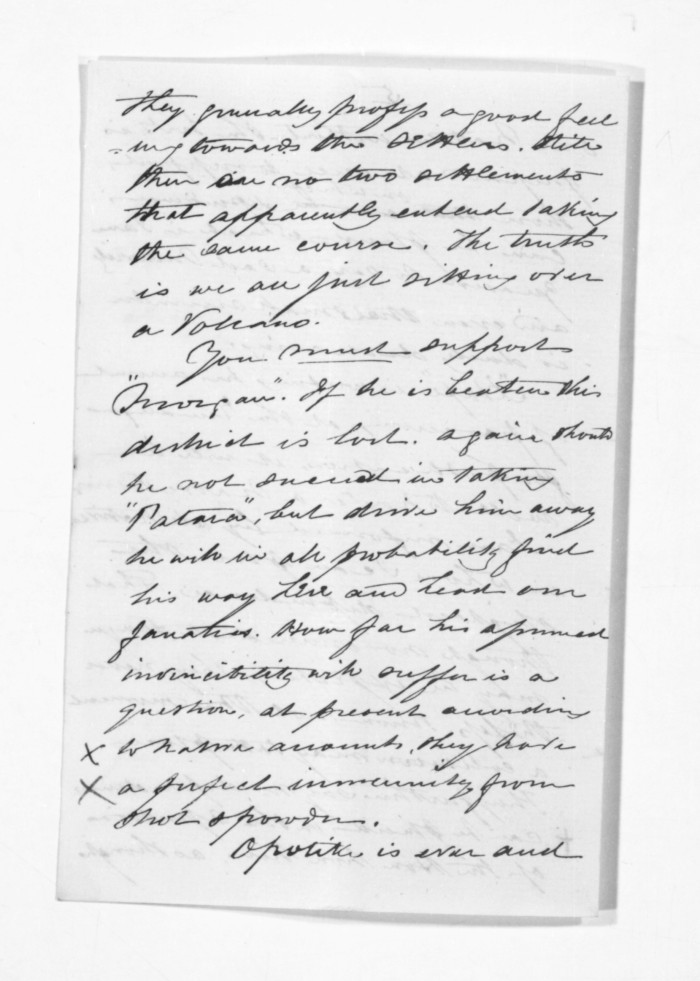 They generally profess a good feel
=ing towards the settlers. Still
there are no two settlements
that apparently entend taking
the same course. The truth
is we are just sitting over
a Volcano.
You must support
"Morgan". If he is beaten this
district is lost. again should
he not succeed in taking
"Patara", but drive him away
he will in all probability find
his way here and lead our
fanatics. How far his assumed
invincibility will suffer is a
question, at present according
x to native accounts, they have
x a perfect immunity from
shot & powder.
Opotiki is ever and